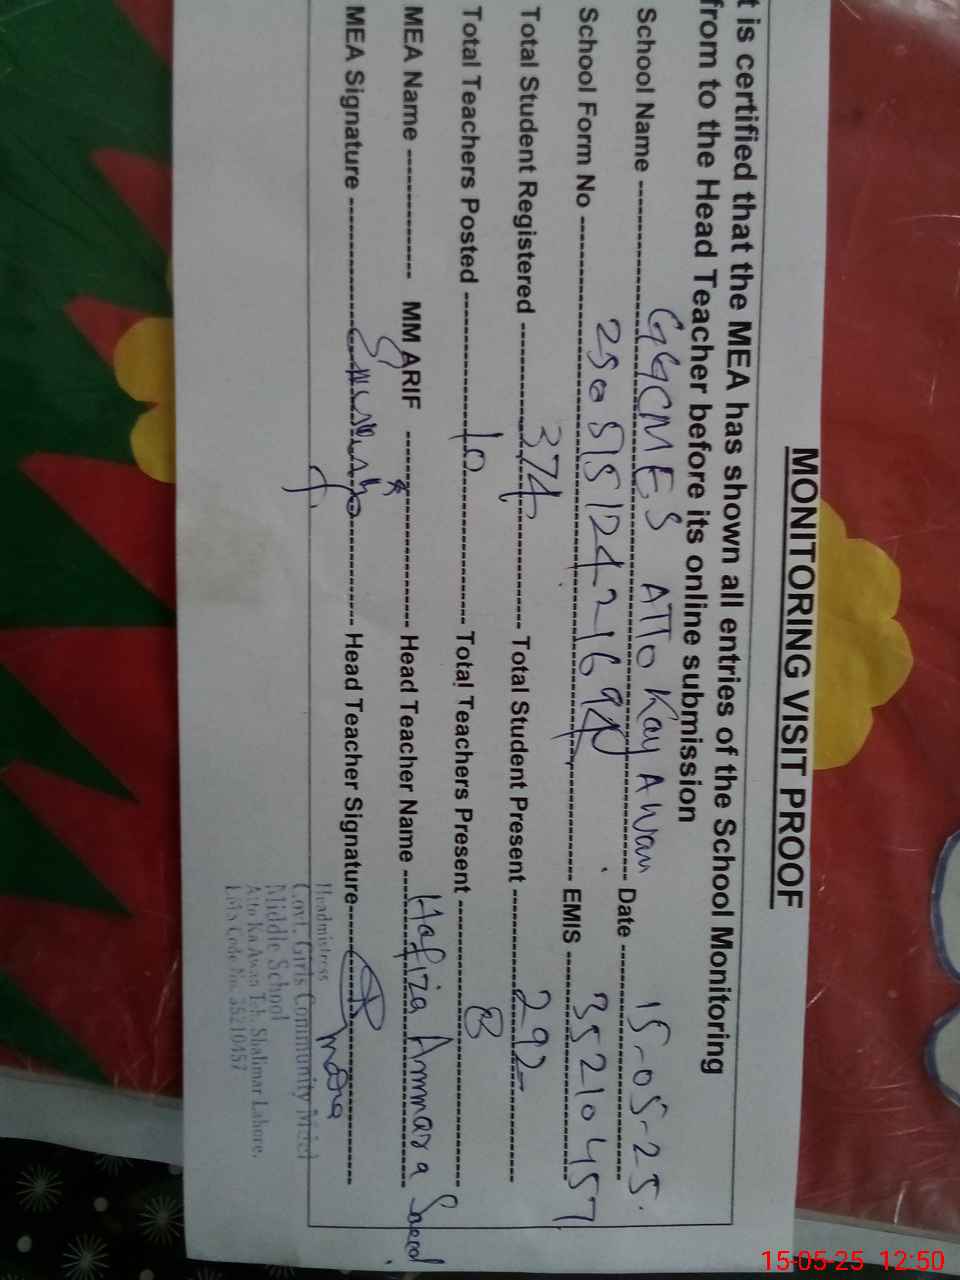 MONITORING VISIT PROOF
t is certified that the MEA has shown all entries of the School Monitoring
from to the Head Teacher before its online submission
School Name ------------ GGCMES ATTO Kay Awan ------------ Date ------------ 15-05-25
School Form No ------------ ------------ EMIS ------------ 35210457
Total Student Registered ------------ 374 ------------ Total Student Present ------------ 292
Total Teachers Posted ------------ 10 ------------ Total Teachers Present ------------ 8
MEA Name ------------ MM ARIF ------------ Head Teacher Name ------------ Hafiza Ammara Saeed
MEA Signature ------------ Head Teacher Signature ------------
Headmistress
Govt. Girls Community Model
Middle School
Atto Ka Awan Teh: Shalimar Lahore.
Code No. 35210457
15-05-25 12:50